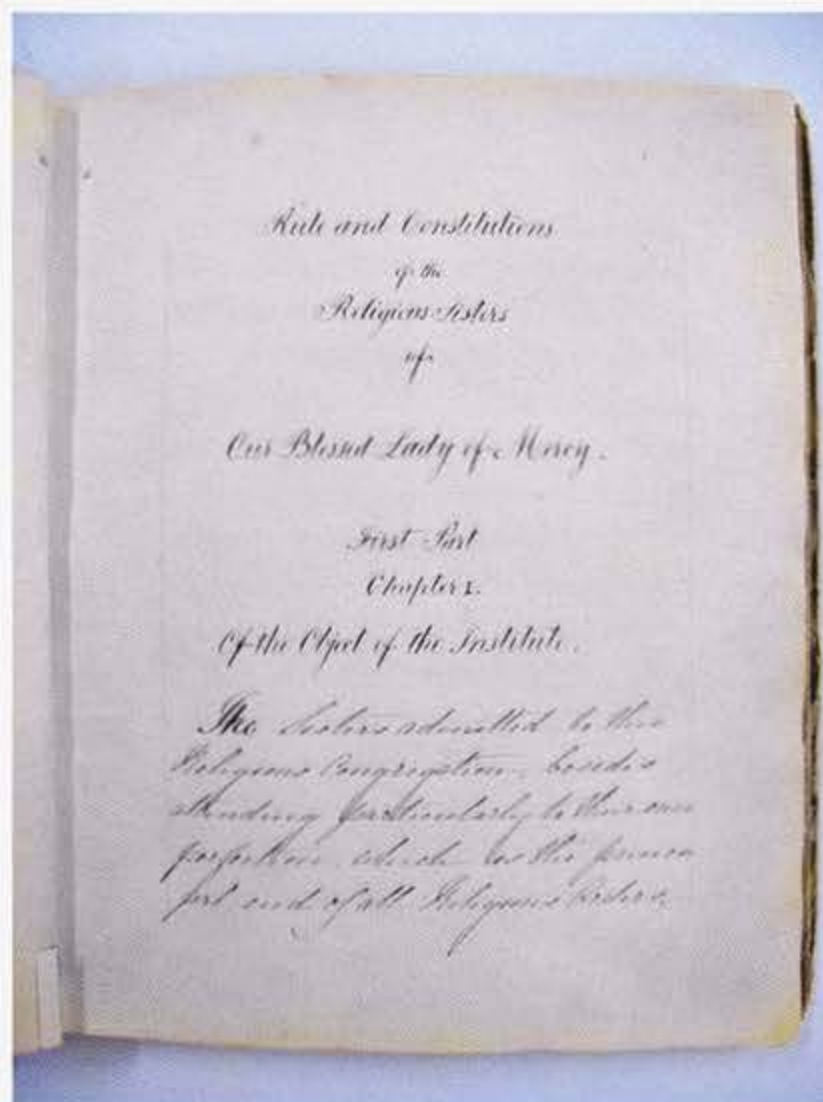 Rule and Constitutions
of the
Religious Sisters
of
Our Blessed Lady of Mercy.
First Part
Chapter 1.
Of the Object of the Institute.
The Sisters admitted to this
Religious Congregation, besides
attending particularly to their own
perfection, which is the princi
pal end of all Religious Orders,